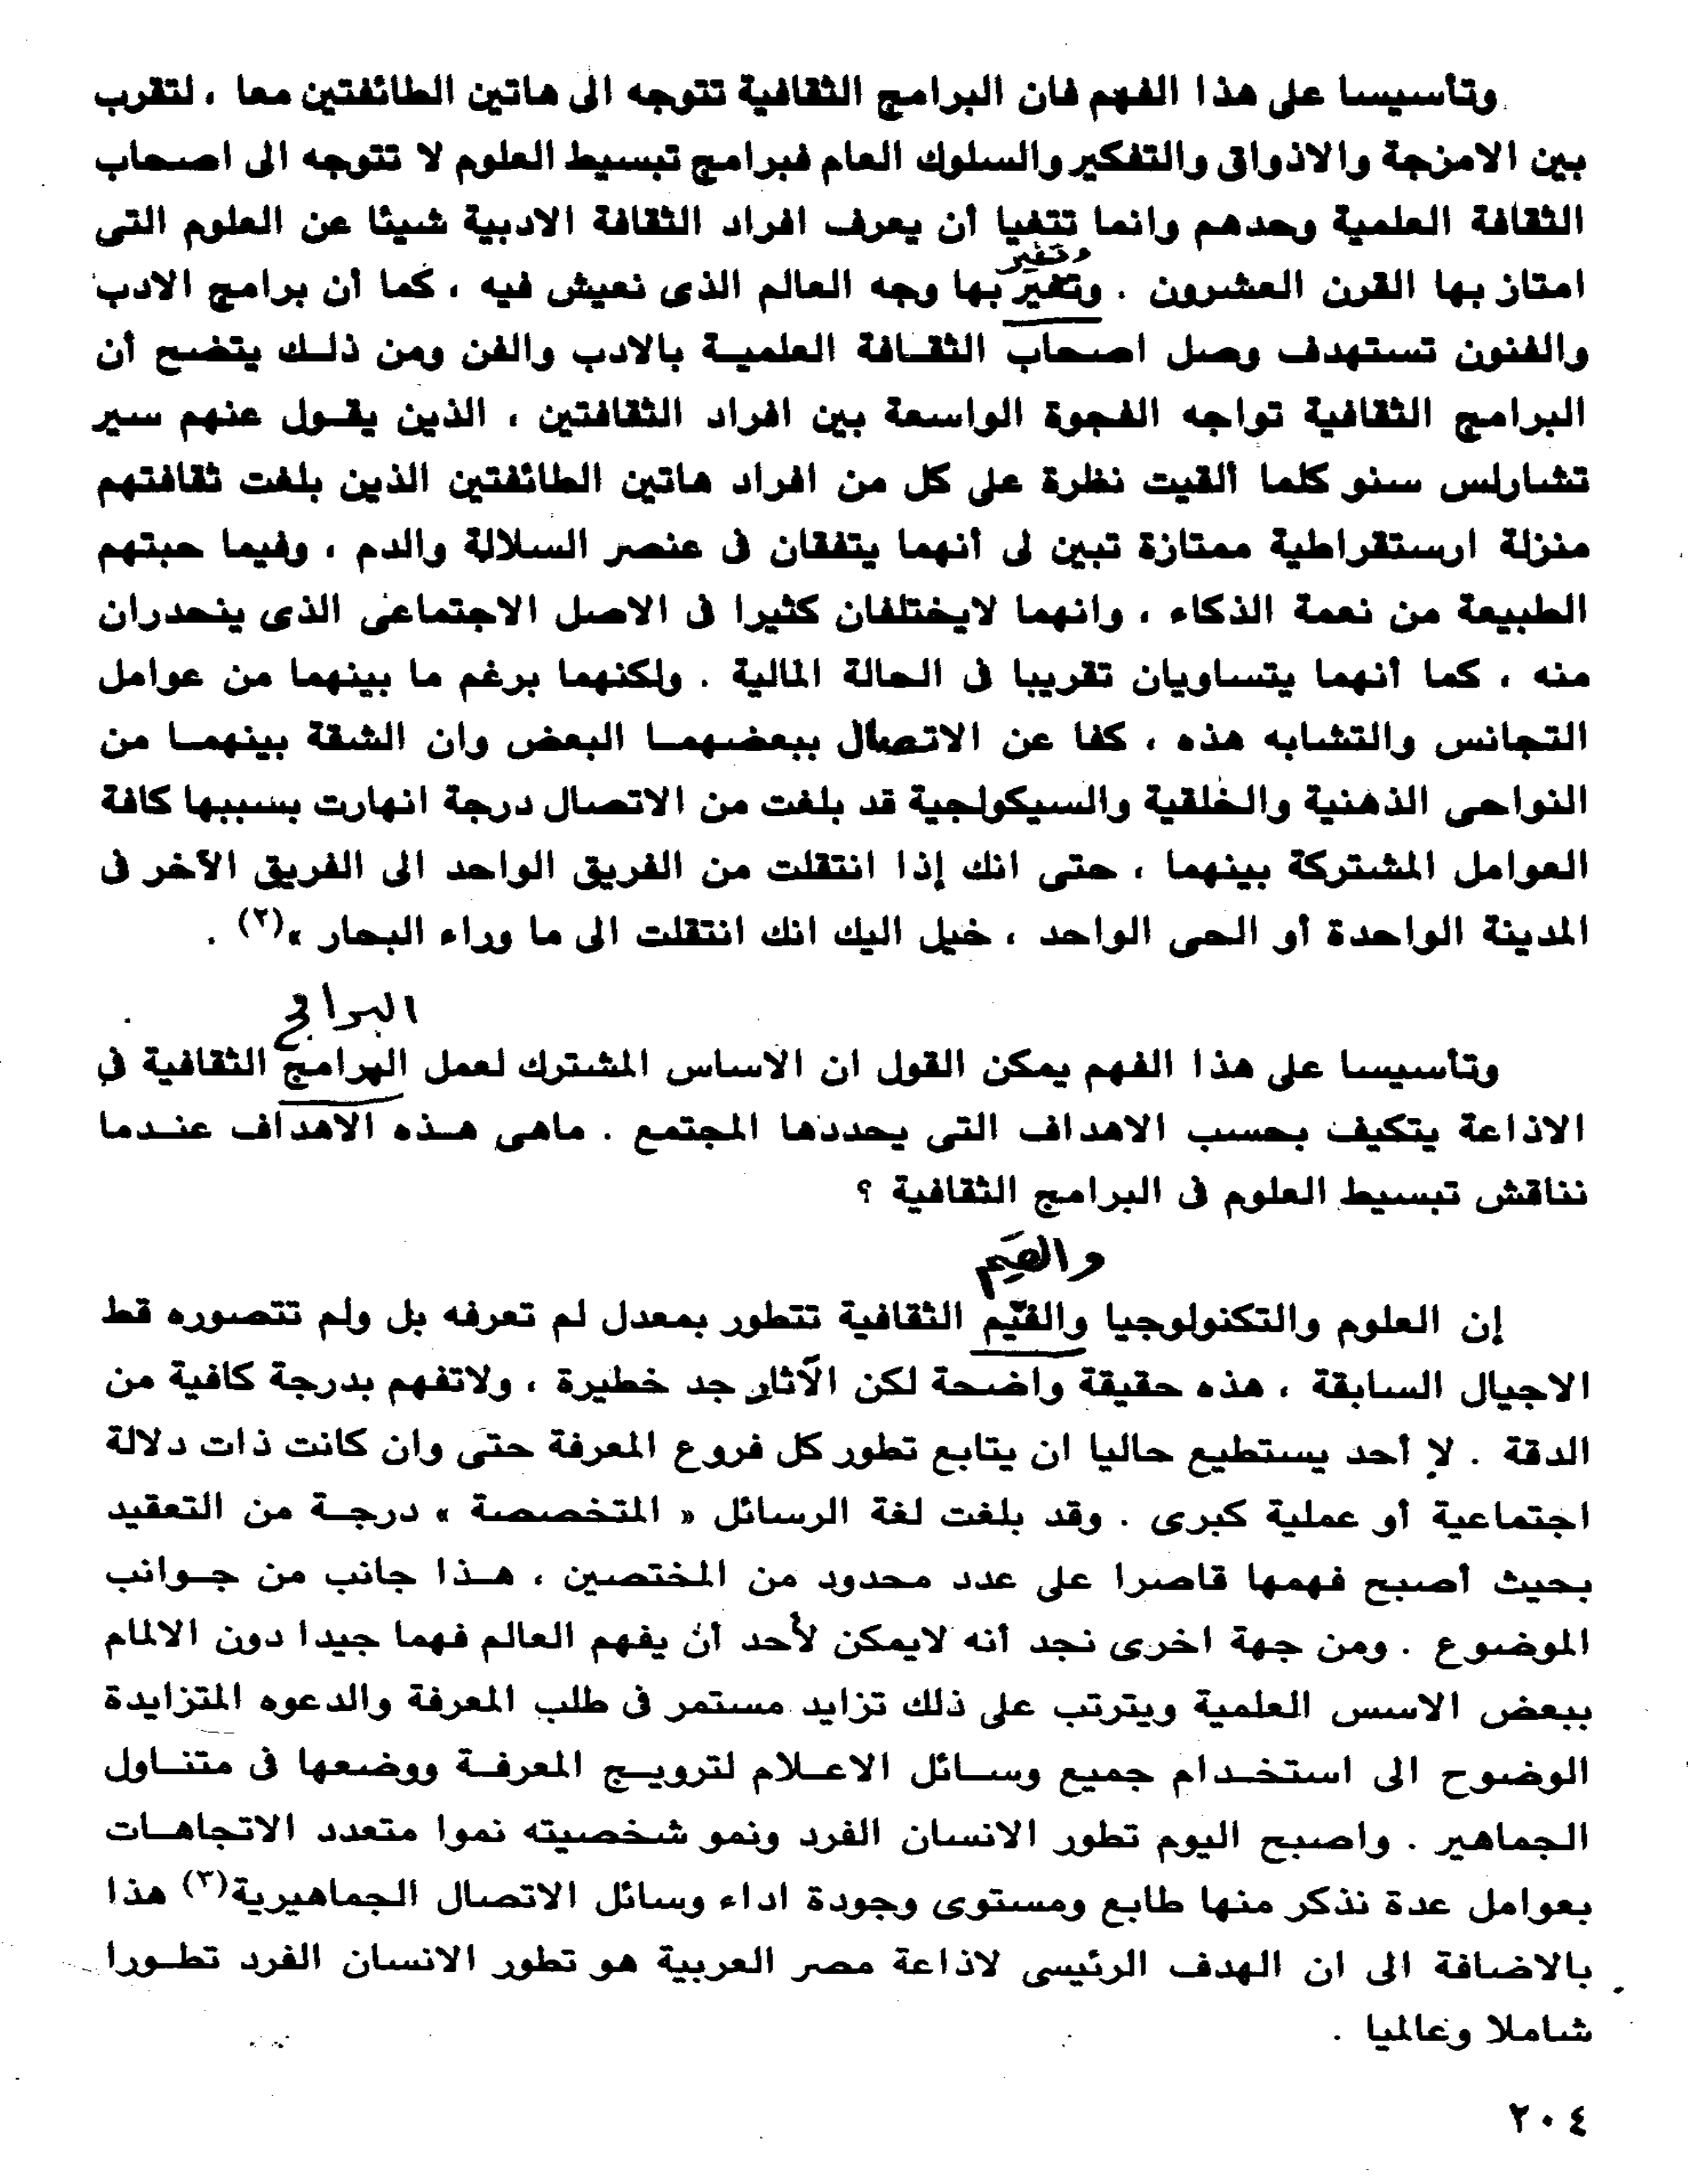 وتأسيسا على هذا الفهم فان البرامج الثقافية تتوجه الى هاتين الطائفتين معا ، لتقرب
بين الامزجة والاذواق والتفكير والسلوك العام فبرامج تبسيط العلوم لا تتوجه الى اصحاب
الثقافة العلمية وحدهم وانما تتغيا أن يعرف افراد الثقافة الادبية شيئا عن العلوم التى
وتغير
امتاز بها القرن العشرون . وتغير بها وجه العالم الذى نعيش فيه ، كما أن برامج الادب
والفنون تستهدف وصل اصحاب الثقافة العلمية بالادب والفن ومن ذلك يتضح أن
البرامج الثقافية تواجه الفجوة الواسعة بين افراد الثقافتين ، الذين يقول عنهم سير
تشارلس سنو كلما ألقيت نظرة على كل من افراد هاتين الطائفتين الذين بلغت ثقافتهم
منزلة ارستقراطية ممتازة تبين لى أنهما يتفقان فى عنصر السلالة والدم ، وفيما حبتهم
الطبيعة من نعمة الذكاء ، وانهما لايختلفان كثيرا فى الاصل الاجتماعى الذى ينحدران
منه ، كما أنهما يتساويان تقريبا فى الحالة المالية . ولكنهما برغم ما بينهما من عوامل
التجانس والتشابه هذه ، كفا عن الاتصال ببعضهما البعض وان الشقة بينهما من
النواحى الذهنية والخلقية والسيكولجية قد بلغت من الاتصال درجة انهارت بسببها كافة
العوامل المشتركة بينهما ، حتى انك إذا انتقلت من الفريق الواحد الى الفريق الآخر فى
المدينة الواحدة أو الحى الواحد ، خيل اليك انك انتقلت الى ما وراء البحار »(٢) .
البرامج
وتأسيسا على هذا الفهم يمكن القول ان الأساس المشترك لعمل البرامج الثقافية فى
الاذاعة يتكيف بحسب الاهداف التى يحددها المجتمع . ماهى هذه الاهداف عندما
نناقش تبسيط العلوم فى البرامج الثقافية ؟
والقيم
إن العلوم والتكنولوجيا والقيم الثقافية تتطور بمعدل لم تعرفه بل ولم تتصوره قط
الاجيال السابقة ، هذه حقيقة واضحة لكن الآثار جد خطيرة ، ولاتفهم بدرجة كافية من
الدقة . لا أحد يستطيع حاليا ان يتابع تطور كل فروع المعرفة حتى وان كانت ذات دلالة
اجتماعية أو عملية كبرى . وقد بلغت لغة الرسائل « المتخصصة » درجة من التعقيد
بحيث أصبح فهمها قاصرا على عدد محدود من المختصين ، هذا جانب من جوانب
الموضوع . ومن جهة اخرى نجد أنه لايمكن لأحد أن يفهم العالم فهما جيدا دون الالمام
ببعض الاسس العلمية ويترتب على ذلك تزايد مستمر فى طلب المعرفة والدعوه المتزايدة
الوضوح الى استخدام جميع وسائل الاعلام لترويج المعرفة ووضعها فى متناول
الجماهير . واصبح اليوم تطور الانسان الفرد ونمو شخصيته نموا متعدد الاتجاهات
بعوامل عدة نذكر منها طابع ومستوى وجودة اداء وسائل الاتصال الجماهيرية(٣) هذا
بالاضافة الى ان الهدف الرئيسى لاذاعة مصر العربية هو تطور الانسان الفرد تطورا
شاملا وعالميا .
٢٠٤